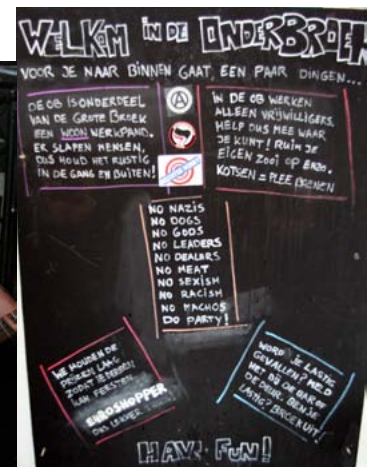 WELKOM IN DE ONDERBROEK
VOOR JE NAAR BINNEN GAAT, EEN PAAR DINGEN...
DE OB IS ONDERDEEL
VAN DE GROTE BROEK
EEN WOON WERKPAND.
ER SLAPEN MENSEN,
DUS HOUD HET RUSTIG
IN DE GANG EN BUITEN!
IN DE OB WERKEN
ALLEEN VRIJWILLIGERS.
HELP DUS MEE WAAR
JE KUNT! RUIM JE
EIGEN ZOOI OP ENZO.
KOTSEN = PLEE
NO NAZIS
NO DOGS
NO GODS
NO LEADERS
NO DEALERS
NO MEAT
NO SEXISM
NO RACISM
NO MACHOS
DO PARTY!
WE HOUDEN DE
LAAG
ZODAT IEDEREEN
KAN FEESTEN.
EUROSHOPPER
LEKKER
WORD JE LASTIG
GEVALLEN? MELD
HET BIJ DE BAR OF
DE DEUR. BEN JE
LASTIG? BROEK UIT!
HAVE FUN!